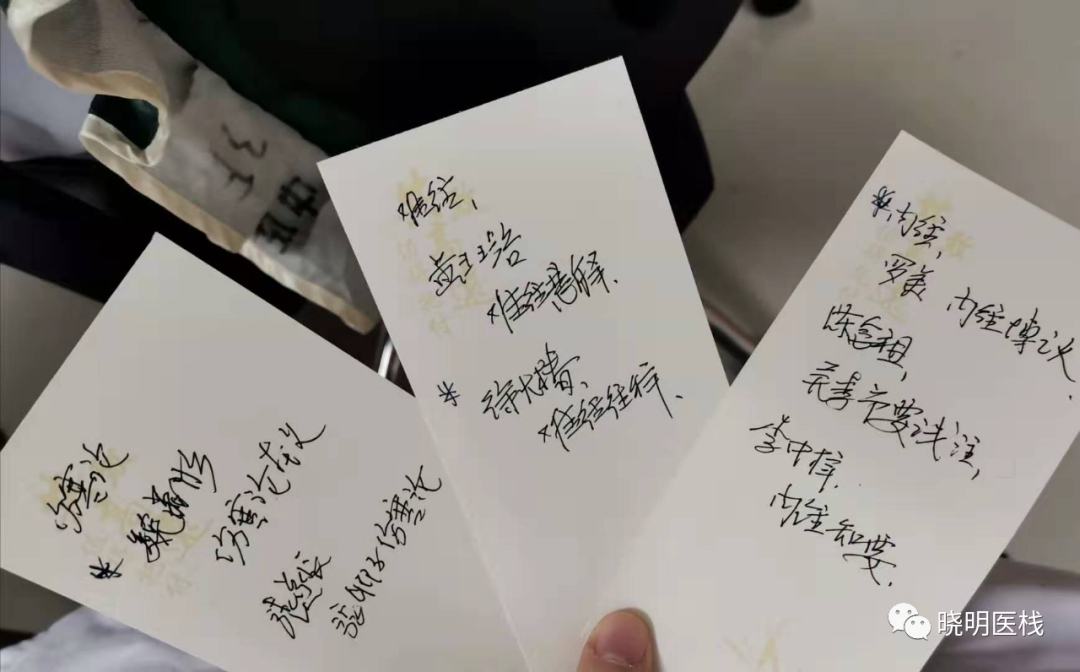 伤寒论
* 魏荔彤
伤寒论本义
张遂辰
张卿子伤寒论
难经、
黄玉路
难经悬解.
* 徐大椿、
难经经释.
*内经,
罗美 内经博议
陈念祖,
灵素节要浅注,
李中梓.
内经知要.
晓明医栈